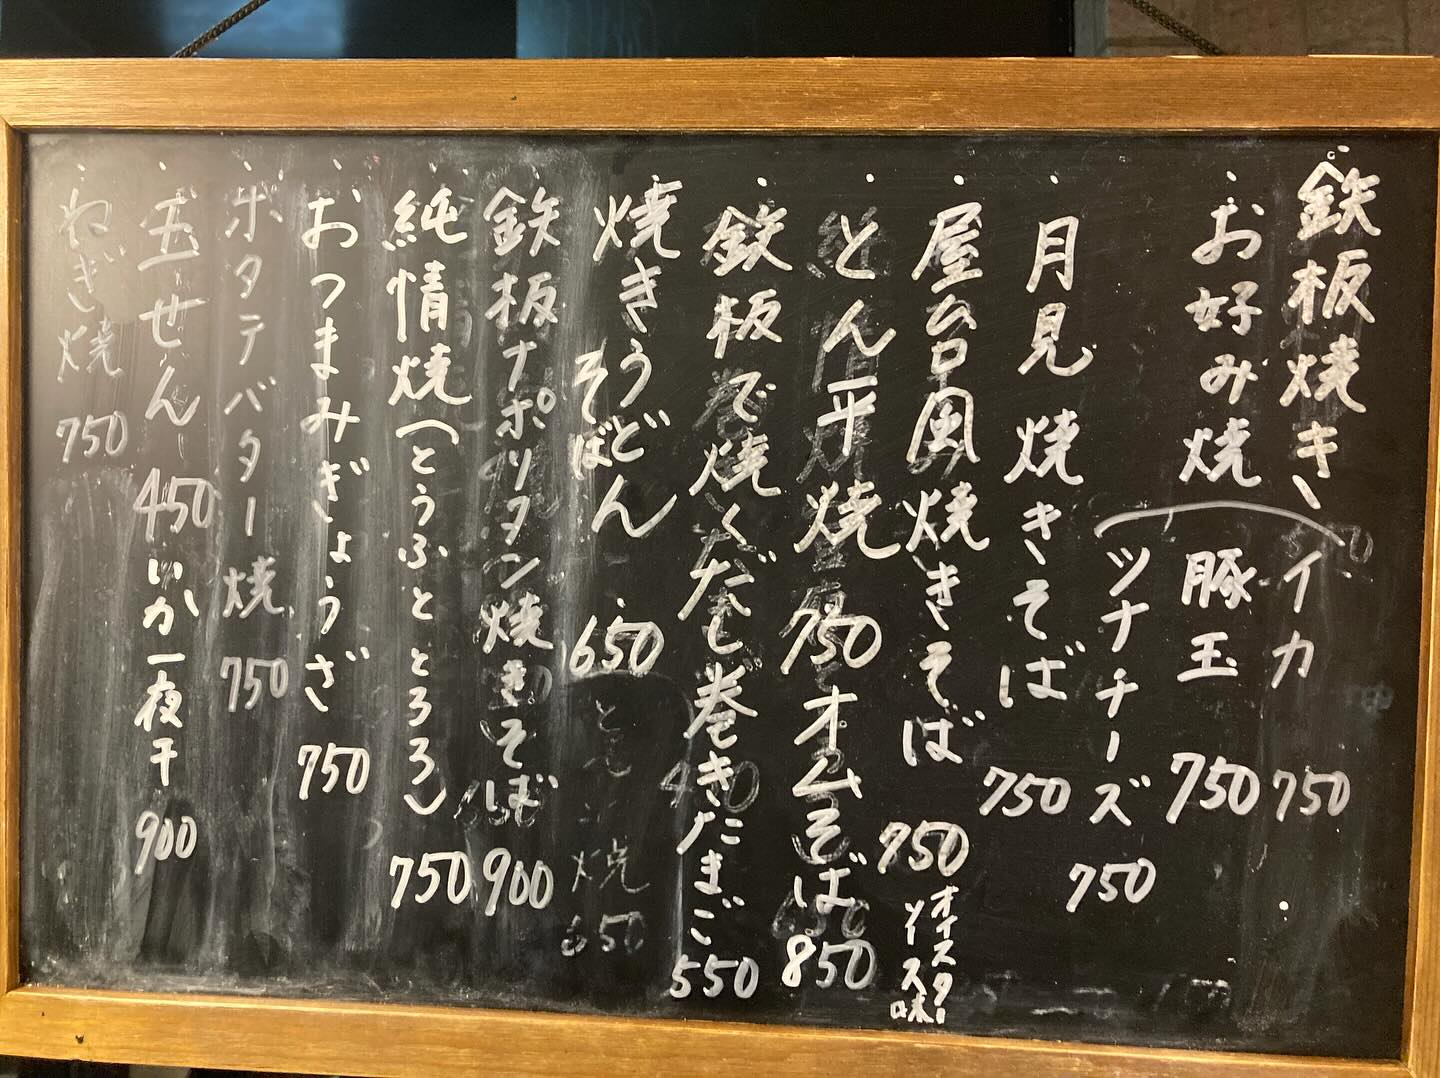 鉄板焼き
お好み焼
イカ 750
豚玉 750
ツナチーズ 750
月見焼きそば 750
屋台風焼きそば 750
オイスターソース味
とん平焼 750
オムそば 850
鉄板で焼くだし巻きたまご 550
焼きうどん
そば 650
鉄板ナポリタン焼きそば 900
純情焼(とうふととろろ) 750
おつまみぎょうざ 750
ホタテバター焼 750
玉せん 450
いか一夜干 900
ねぎ焼 750